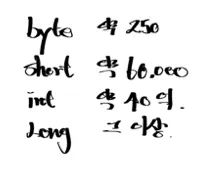 byte 약 250
short 약 60.000
int 약 40억.
Long 그 이상.